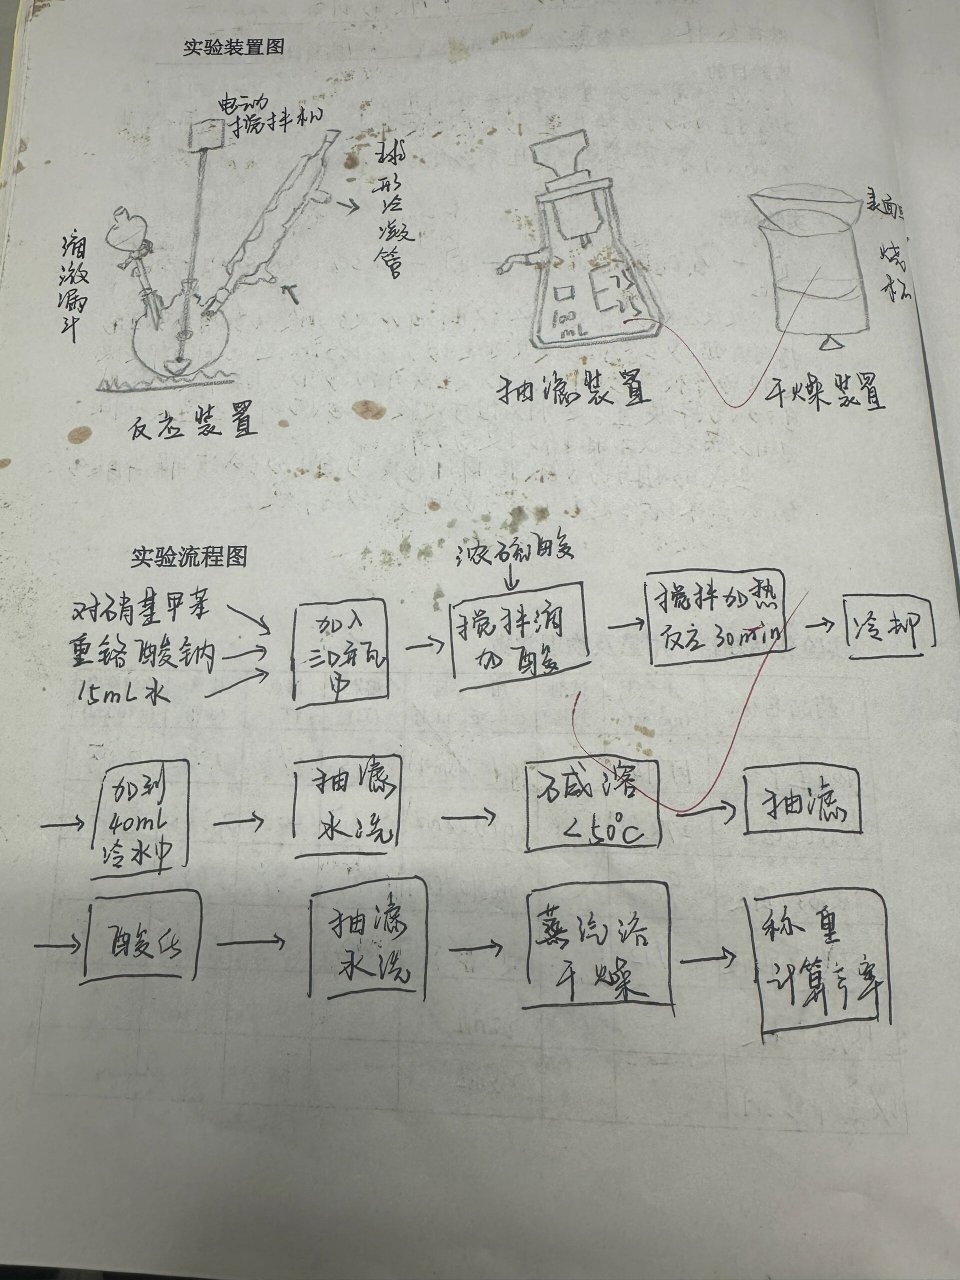 实验装置图
电动
搅拌机
球形冷凝管
滴液漏斗
表面
烧杯
75
25
100
mL
反应装置
抽滤装置
干燥装置
实验流程图
浓硫酸
对硝基甲苯
重铬酸钠
15mL水
加入
三口瓶
中
搅拌滴
加酸
搅拌加热
反应30min
冷却
加到
40mL
冷水中
抽滤
水洗
碱溶
<50℃
抽滤
酸化
抽滤
水洗
蒸汽浴
干燥
称重
计算产率